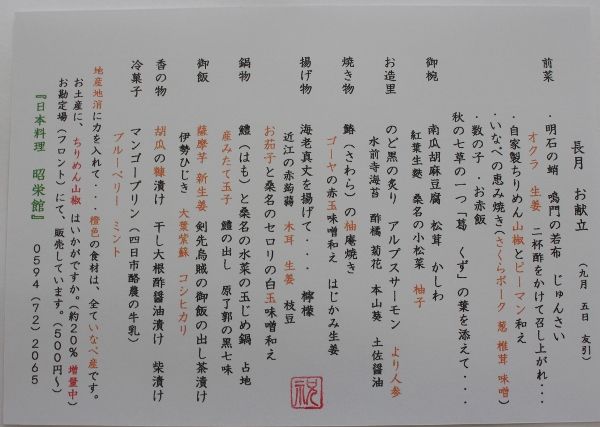 長月 お献立 （九月 五日 友引）
前菜 ・明石の蛸 鳴門の若布 じゅんさい
オクラ 生姜 二杯酢をかけて召し上がれ・・・
・自家製ちりめん山椒とピーマン和え
・いなべの恵み焼き（さくらポーク 葱 椎茸 味噌）
・数の子 ・お赤飯
秋の七草の一つ「葛 くず」の葉を添えて・・・
御椀 南瓜胡麻豆腐 松茸 かしわ
紅葉生麩 桑名の小松菜 柚子
お造里 のど黒の炙り アルプスサーモン より人参
水前寺海苔 酢橘 菊花 本山葵 土佐醤油
焼き物 鰆（さわら）の柚庵焼き
ゴーヤの赤玉味噌和え はじかみ生姜
揚げ物 海老真丈を揚げて・・・ 檸檬
近江の赤蒟蒻 木耳 生姜 枝豆
お茄子と桑名のセロリの白玉味噌和え
鍋物 鱧（はも）と桑名の水菜の玉じめ鍋 占地
産みたて玉子 鱧の出し 原了郭の黒七味
御飯 薩摩芋 新生姜 剣先烏賊の御飯の出し茶漬け
伊勢ひじき 大葉紫蘇 コシヒカリ
香の物 胡瓜の糠漬け 干し大根酢醤油漬け 柴漬け
冷菓子 マンゴープリン（四日市酪農の牛乳）
ブルーベリー ミント
地産地消に力を入れて・・・橙色の食材は、全ていなべ産です。
お土産に、ちりめん山椒 はいかがですか。（約20％ 増量中）
お勘定場（フロント）にて、販売しています。（500円〜）
『日本料理 昭栄館』 0594（72）2065
祝